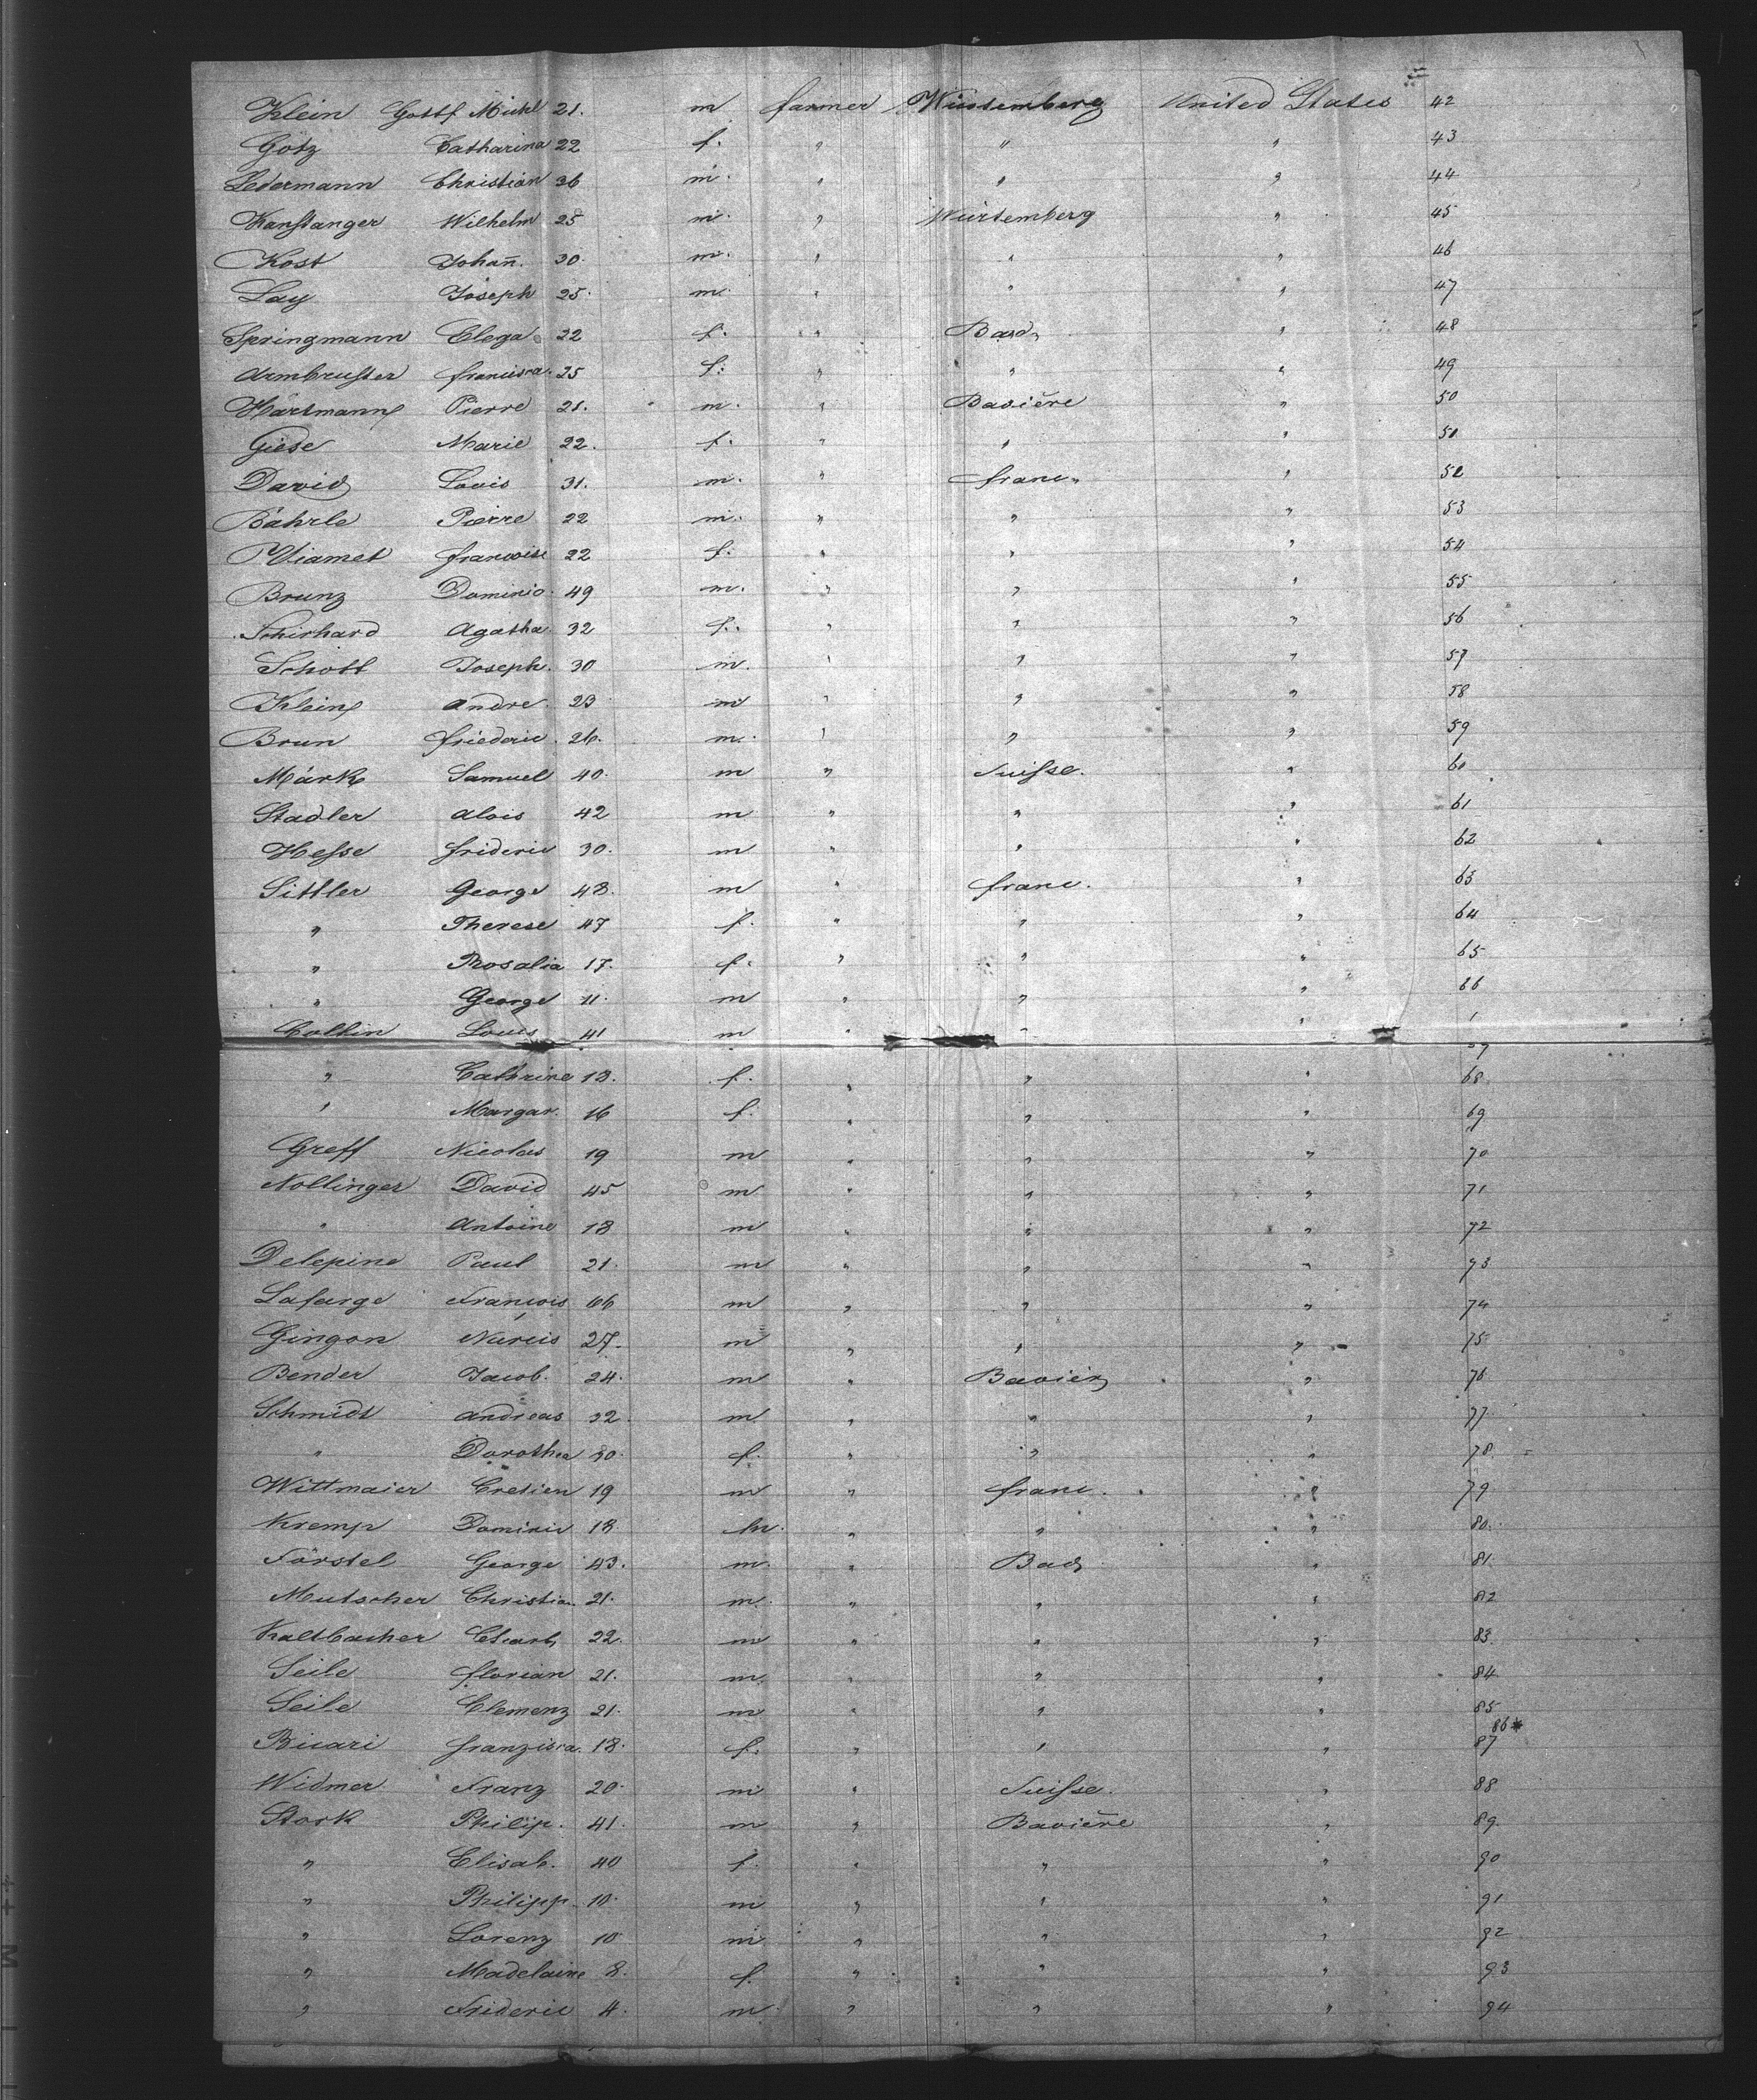 Klein Gottf Michl 21. m farmer Würtemberg United States 42
Götz Catharina 22 f. " " " 43
Ledermann Christian 36 m. " " " 44
Hanfstanger Wilhelm 25 m. " Würtemberg " 45
Kost Johañ. 30. m. " " " 46
Lay Joseph 25. m. " " " 47
Springmann 22 f. " Bad " 48
Armbruster francisca. 25 f. " " " 49
Hartmann Pierre 21. m. " Bavière " 50
Giese Marie 22. f. " " " 51
David Louis 31. m. " franc. " 52
Bährle Pierre 22 m. " " " 53
francoise 22 f. " " " 54
Brunz Dominic. 49 m. " " " 55
Schirhard Agatha. 32 f. " " " 56
Schott Joseph. 30 m. " " " 57
Klein Andre. 23 m " " " 58
Brun friederic. 26. m. " " " 59
Märk Samuel 40. m " Suisse. " 60
Stadler Alois 42 m " " " 61
Hesse frideric 30. m " " " 62
Sittler George 48. m " franc. " 63
" Therese 47 f. " " " 64
" Rosalia 17. f. " " " 65
" George 11. m " " " 66
Collin Louis 41 m " " "
" Cathrine 13. f. " " " 68
" Margar. 16 f. " " " 69
Greff Nicolas 19 m " " " 70
Nollinger David 45 m " " " 71
" Antoine 18 m " " " 72
Delepine Paul 21. m " " " 73
Lafarge Francois 66 m " " " 74
Gingon Narcis 27. m " " " 75
Bender Jacob. 24. m " Bavièr " 76
Schmidt Andreas 32. m " " " 77
" Dorothea 30. f. " " " 78
Wittmaier Cretien 19 m " franc. " 79
Kremp Dominic 18 m. " " " 80.
Förstel George 43. m. " Bad " 81.
Mutscher Christian. 21. m. " " " 82
Kaltbacher Charl 22. m " " " 83
Seile florian 21. m. " " " 84
Seile Clemenz 21. m " " " 85
86*
Ricari franzisca. 18. f. " " " 87
Widmer Franz 20. m " Suisse. " 88
Stork Philip. 41. m " Bavière " 89.
" Elisab. 40 f. " " " 90
" Philipp. 10. m " " " 91
" Lorenz 10 m " " " 92
" Madelaine 8. f. " " " 93
" Frideric 4. m. " " " 94